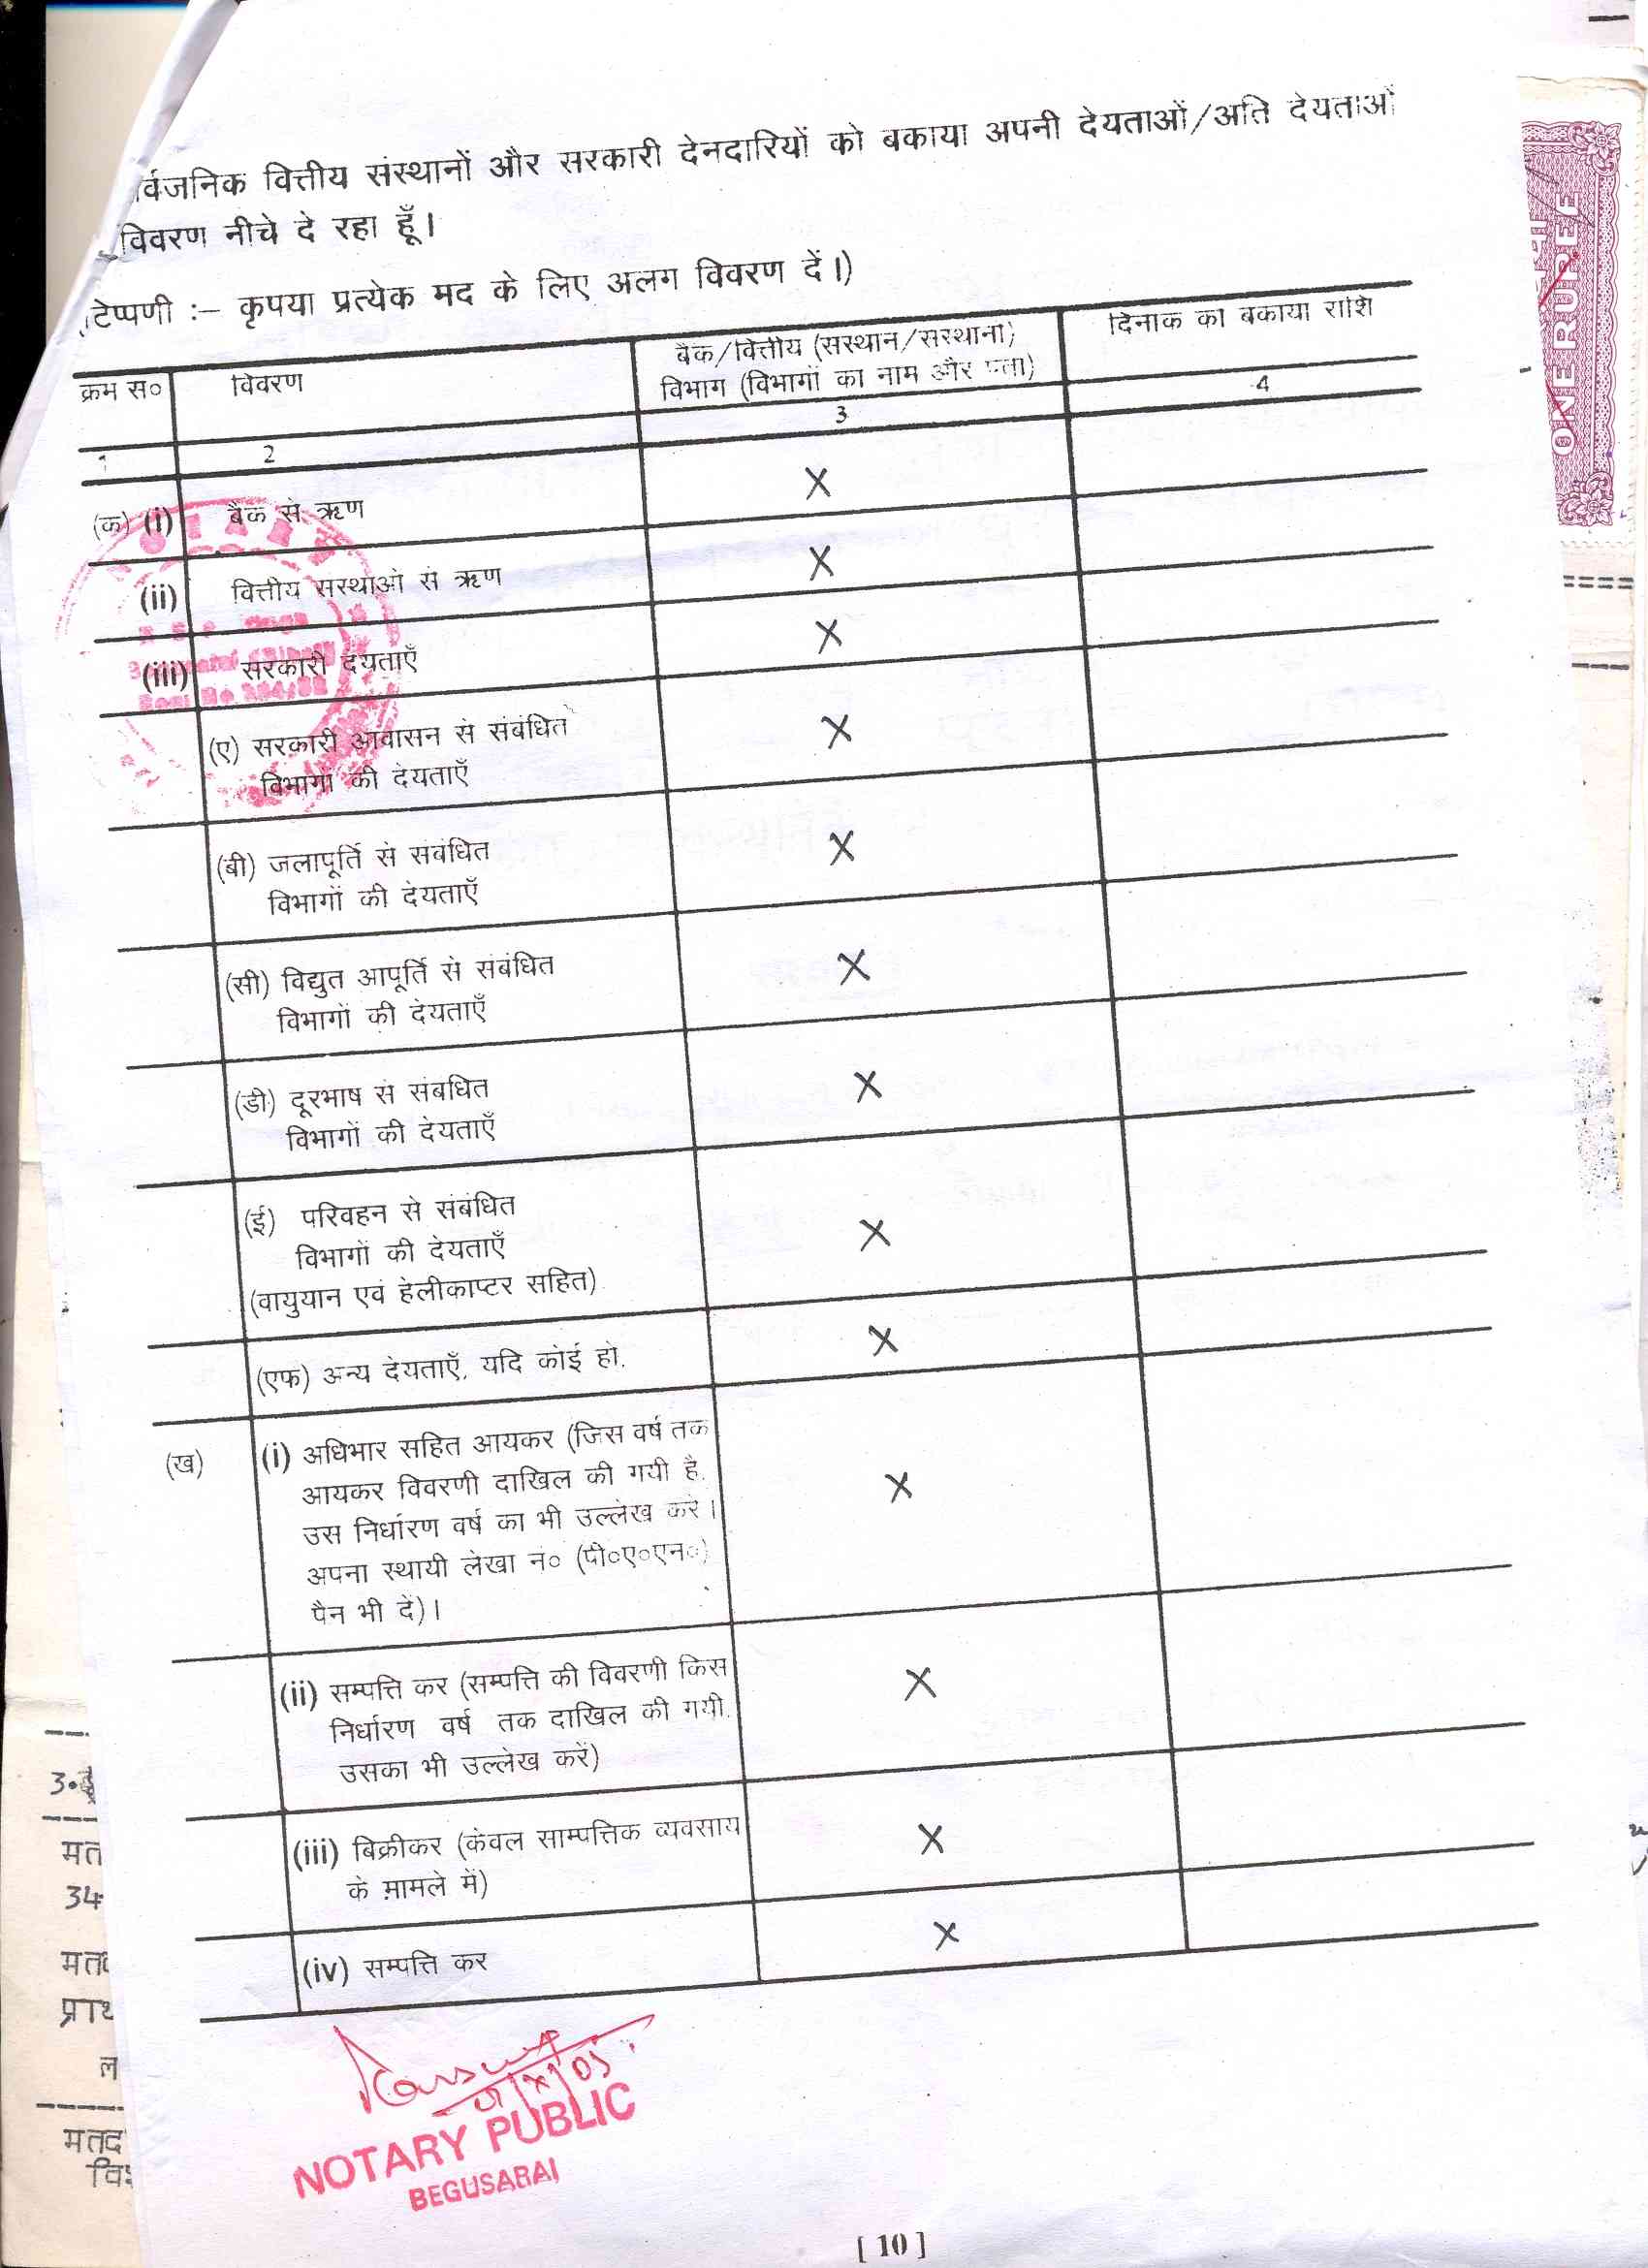 र्वजनिक वित्तीय संस्थानों और सरकारी देनदारियों को बकाया अपनी देयताओं/अति देयताओं
विवरण नीचे दे रहा हूँ।
टिप्पणी :– कृपया प्रत्येक मद के लिए अलग विवरण दें।)
क्रम स० विवरण
बैंक/वित्तीय (संस्थान/संस्थानों)
विभाग (विभागों का नाम और पता)
दिनांक को बकाया राशि
1 2 3 4
(क) (i) बैंक से ऋण X
(ii) वित्तीय संस्थाओं से ऋण X
(iii) सरकारी देयताएँ X
(ए) सरकारी आवासन से संबंधित X
विभागों की देयताएँ
(बी) जलापूर्ति से संबंधित X
विभागों की देयताएँ
(सी) विद्युत आपूर्ति से संबंधित X
विभागों की देयताएँ
(डी) दूरभाष से संबंधित X
विभागों की देयताएँ
(ई) परिवहन से संबंधित
विभागों की देयताएँ X
(वायुयान एवं हेलीकाप्टर सहित)
(एफ) अन्य देयताएँ, यदि कोई हो. X
(ख) (i) अधिभार सहित आयकर (जिस वर्ष तक
आयकर विवरणी दाखिल की गयी है. X
उस निर्धारण वर्ष का भी उल्लेख करें।
अपना स्थायी लेखा नं० (पी०ए०एन०)
पैन भी दें)।
(ii) सम्पत्ति कर (सम्पत्ति की विवरणी किस X
निर्धारण वर्ष तक दाखिल की गयी.
उसका भी उल्लेख करें)
(iii) बिक्रीकर (केवल साम्पत्तिक व्यवसाय X
के मामले में)
(iv) सम्पत्ति कर X
NOTARY PUBLIC
BEGUSARAI
[ 10 ]
ONE RUPEE
3.
मत
34
मत
प्रा
ल
मतद
वि